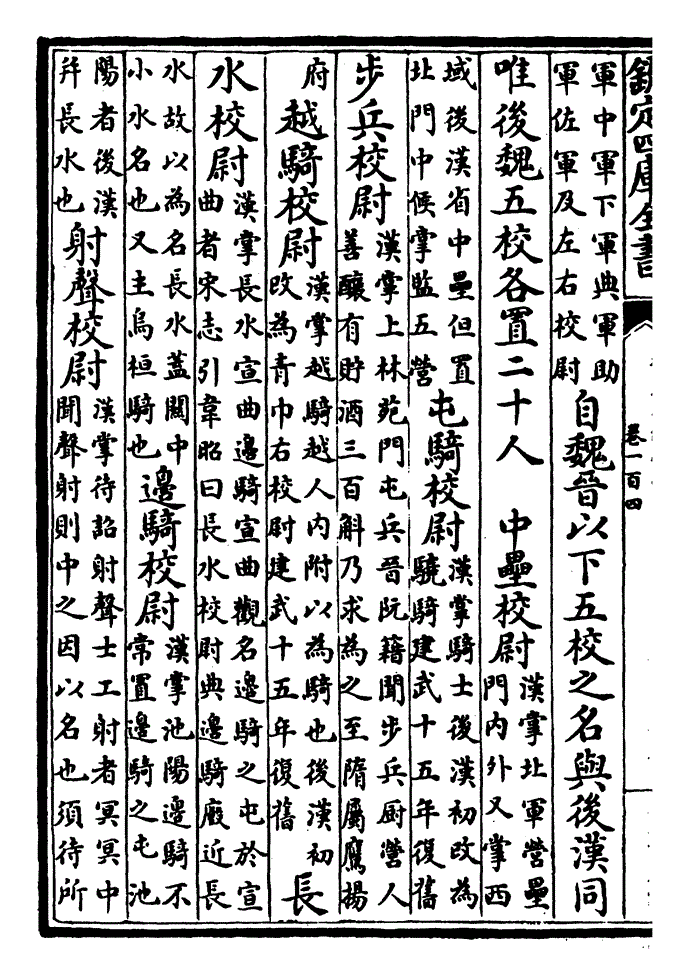 欽定四庫全書
卷一百四
軍中軍下軍典軍助
軍佐軍及左右校尉
自魏晉以下五校之名與後漢同
唯後魏五校各置二十人　中壘校尉
漢掌北軍營壘
門内外又掌西
域後漢省中壘但置
北門中候掌監五營
屯騎校尉
漢掌騎士後漢初改為
驍騎建武十五年復舊
步兵校尉
漢掌上林苑門屯兵晉阮籍聞步兵厨營人
善釀有貯酒三百斛乃求為之至隋屬鷹揚
府
越騎校尉
漢掌越騎越人内附以為騎也後漢初
改為青巾右校尉建武十五年復舊
長
水校尉
漢掌長水宣曲邊騎宣曲觀名邊騎之屯於宣
曲者宋志引韋昭曰長水校尉典邊騎廐近長
水故以為名長水蓋關中
小水名也又主烏桓騎也
邊騎校尉
漢掌池陽邊騎不
常置邊騎之屯池
陽者後漢
并長水也
射聲校尉
漢掌待詔射聲士工射者冥冥中
聞聲射則中之因以名也須待所